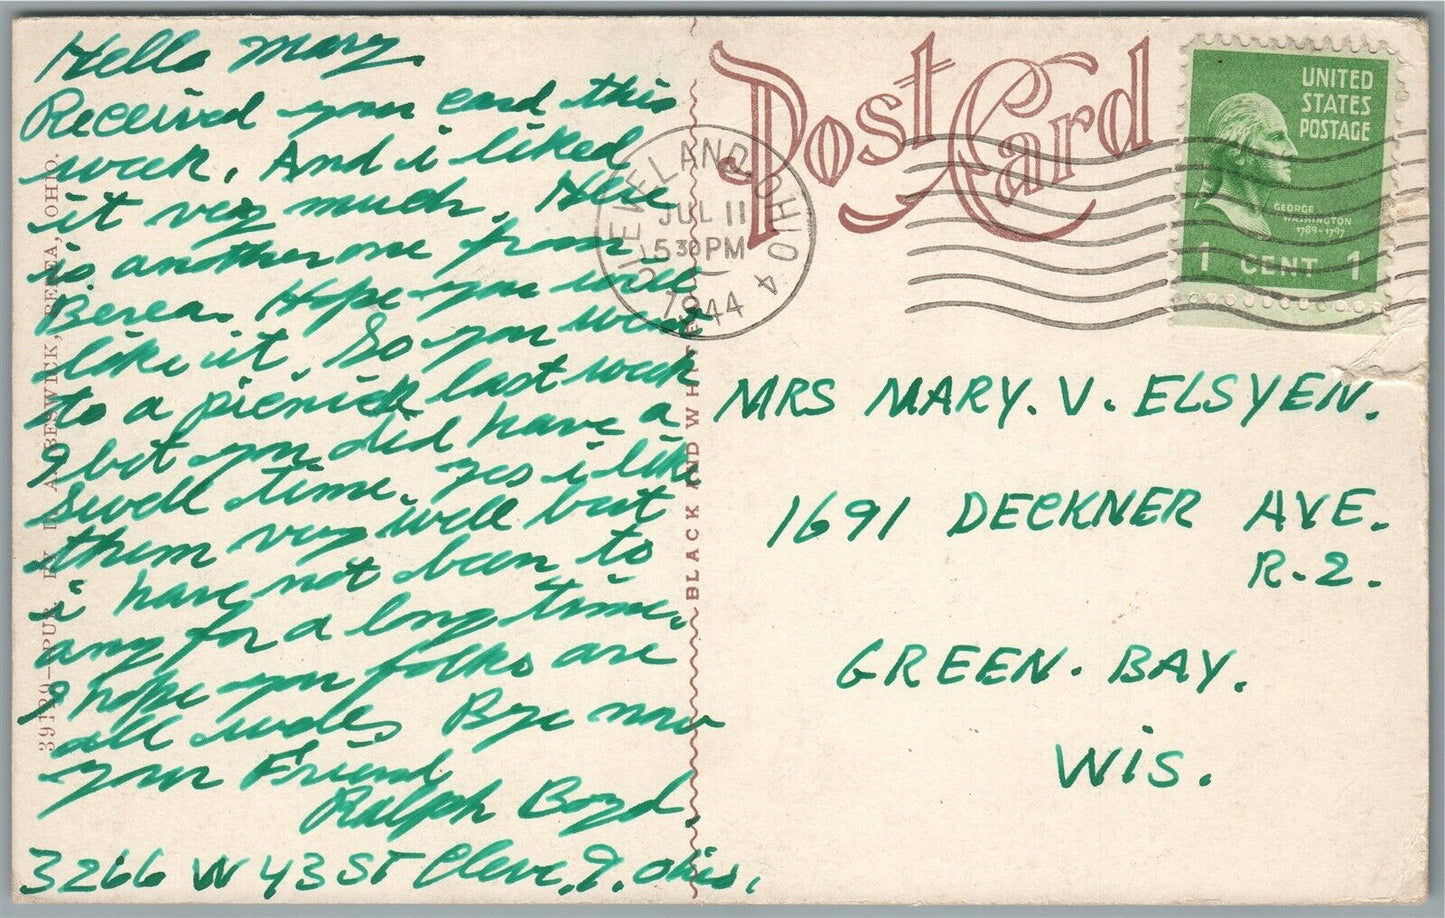 Hello Mary.
Received your card this
week. And i liked
it very much. Here
is another one from
Berea. Hope you will
like it. So you went
to a picnick last week
I bet you did have a
Swell time. yes i like
them very well but
i have not been to
any for a long time.
I hope you folks are
all well. Bye now
your Friend
Ralph Boyd.
3266 W 43 ST Cleve. 9. Ohio.
POST CARD
CLEVELAND, OHIO 4
JUL 11
5 30 PM
1944
UNITED
STATES
POSTAGE
GEORGE
WASHINGTON
1789-1797
1 CENT 1
MRS MARY. V. ELSYEN.
1691 DECKNER AVE.
R-2.
GREEN. BAY.
WIS.
39120—PUB. BY BESWICK, BEREA, OHIO.
BLACK AND WHITE